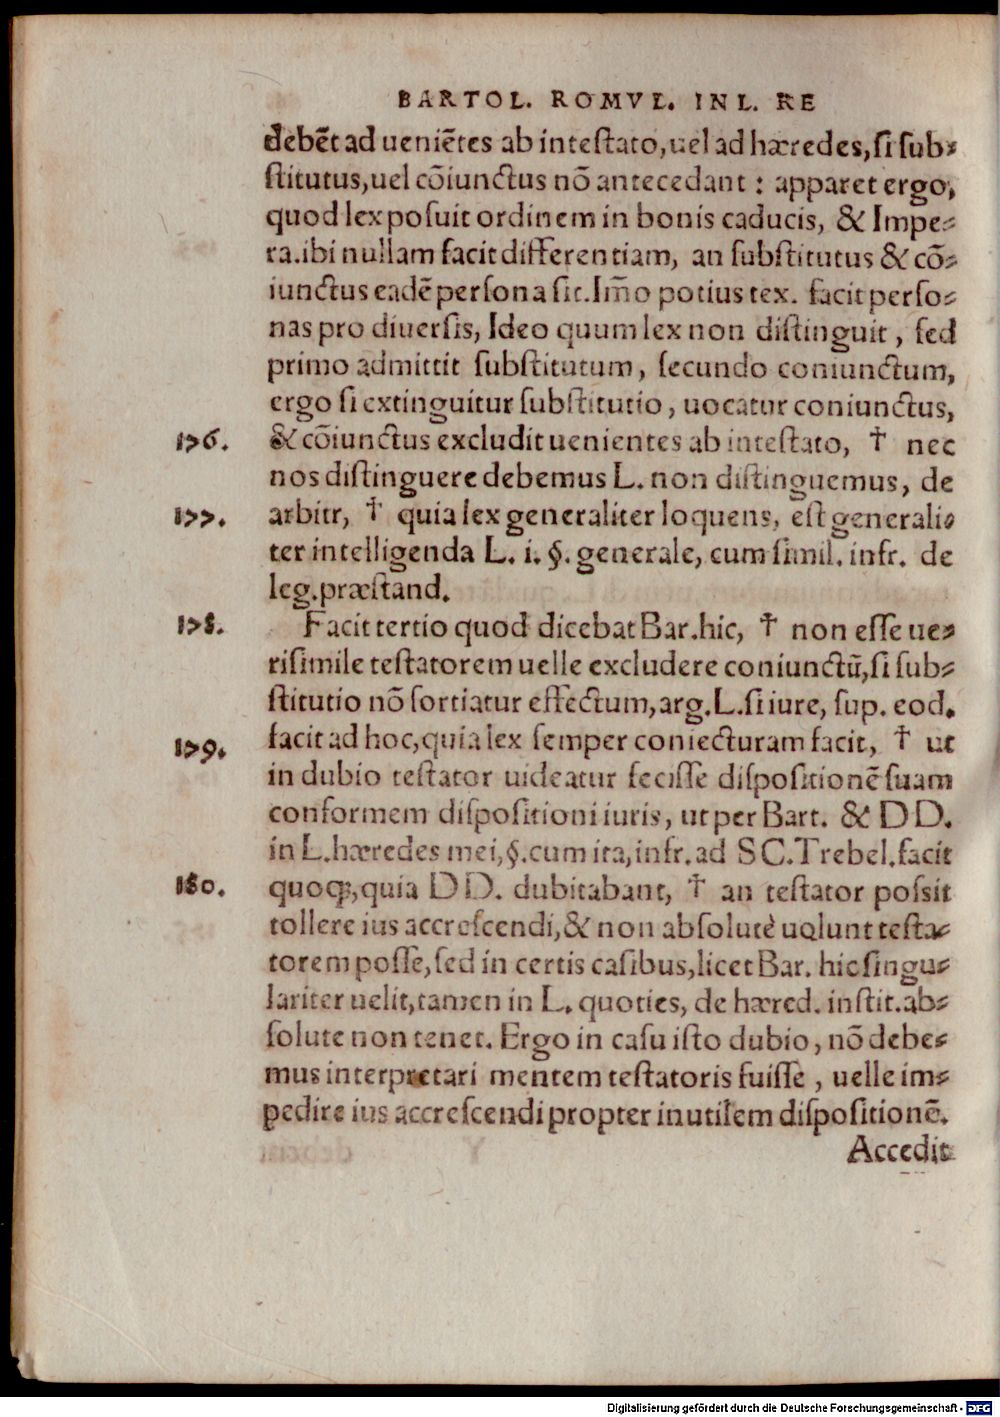 BARTOL. ROMVL. IN L. RE
debēt ad ueniētes ab intestato, uel ad hæredes, si sub-
stitutus, uel cōiunctus nō antecedant : apparet ergo,
quod lex posuit ordinem in bonis caducis, & Impe-
ra. ibi nullam facit differentiam, an substitutus & cō-
iunctus eadē persona sit. Im̄o potius tex. facit perso-
nas pro diuersis, Ideo quum lex non distinguit, sed
primo admittit substitutum, secundo coniunctum,
ergo si extinguitur substitutio, uocatur coniunctus,
176. & cōiunctus excludit uenientes ab intestato, † nec
nos distinguere debemus L. non distinguemus, de
177. arbitr, † quia lex generaliter loquens, est generali-
ter intelligenda L. i. §. generale, cum simil. infr. de
leg. præstand.
178. Facit tertio quod dicebat Bar. hic, † non esse ue-
risimile testatorem uelle excludere coniunctū, si sub-
stitutio nō sortiatur effectum, arg. L. si iure, sup. eod.
179. facit ad hoc, quia lex semper coniecturam facit, † ut
in dubio testator uideatur fecisse dispositionē suam
conformem dispositioni iuris, ut per Bart. & DD.
in L. hæredes mei, §. cum ita, infr. ad SC. Trebel. facit
180. quoq;, quia DD. dubitabant, † an testator possit
tollere ius accrescendi, & non absolutè uolunt testa-
torem posse, sed in certis casibus, licet Bar. hic singu-
lariter uelit, tamen in L. quoties, de hæred. instit. ab-
solute non tenet. Ergo in casu isto dubio, nō debe-
mus interpretari mentem testatoris fuisse, uelle im-
pedire ius accrescendi propter inutilem dispositionē.
Accedit
Digitalisierung gefördert durch die Deutsche Forschungsgemeinschaft - DFG